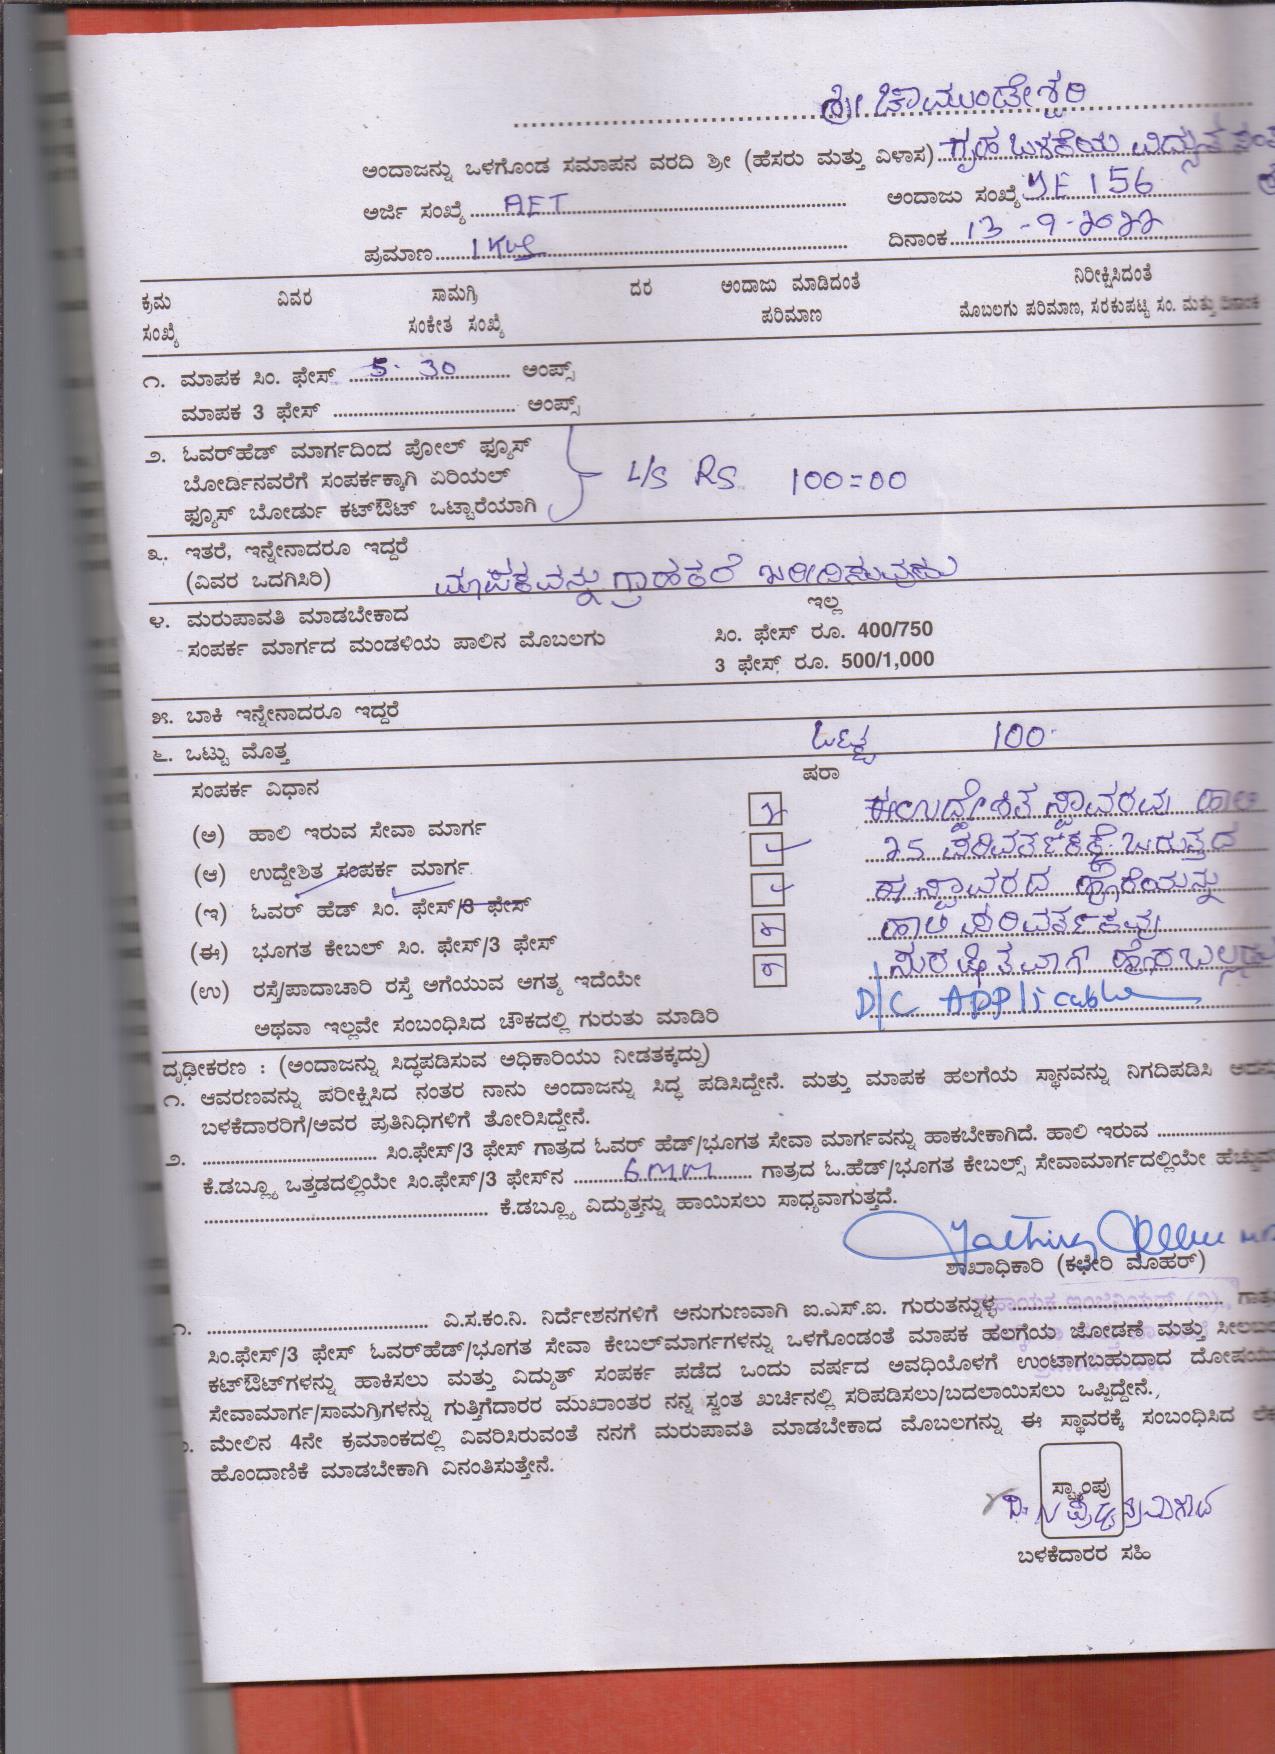 ಶ್ರೀ ಚಾಮುಂಡೇಶ್ವರಿ
ಅಂದಾಜನ್ನು ಒಳಗೊಂಡ ಸಮಾಪನ ವರದಿ ಶ್ರೀ (ಹೆಸರು ಮತ್ತು ವಿಳಾಸ) ಗೃಹ ಬಳಕೆಯ ವಿದ್ಯುತ್
ಅರ್ಜಿ ಸಂಖ್ಯೆ AET ಅಂದಾಜು ಸಂಖ್ಯೆ JE 156
ಪ್ರಮಾಣ 1 KW ದಿನಾಂಕ 13-9-2022
ಕ್ರಮ ಸಂಖ್ಯೆ ವಿವರ ಸಾಮಗ್ರಿ ಸಂಕೇತ ಸಂಖ್ಯೆ ದರ ಅಂದಾಜು ಮಾಡಿದಂತೆ ಪರಿಮಾಣ ನಿರೀಕ್ಷಿಸಿದಂತೆ ಮೊಬಲಗು ಪರಿಮಾಣ, ಸರಕುಪಟ್ಟಿ ಸಂ. ಮತ್ತು ದಿನಾಂಕ
೧. ಮಾಪಕ ಸಿಂ. ಫೇಸ್ 5-30 ಅಂಪ್ಸ್
ಮಾಪಕ 3 ಫೇಸ್ ಅಂಪ್ಸ್
೨. ಓವರ್‌ಹೆಡ್ ಮಾರ್ಗದಿಂದ ಪೋಲ್ ಫ್ಯೂಸ್
ಬೋರ್ಡಿನವರೆಗೆ ಸಂಪರ್ಕಕ್ಕಾಗಿ ಏರಿಯಲ್ L/S RS 100=00
ಫ್ಯೂಸ್ ಬೋರ್ಡು ಕಟ್‌ಔಟ್ ಒಟ್ಟಾರೆಯಾಗಿ
೩. ಇತರೆ, ಇನ್ನೇನಾದರೂ ಇದ್ದರೆ
(ವಿವರ ಒದಗಿಸಿರಿ) ಮಾಪಕವನ್ನು ಗ್ರಾಹಕರೆ ಖರೀದಿಸುವುದು
೪. ಮರುಪಾವತಿ ಮಾಡಬೇಕಾದ ಇಲ್ಲ
ಸಂಪರ್ಕ ಮಾರ್ಗದ ಮಂಡಳಿಯ ಪಾಲಿನ ಮೊಬಲಗು ಸಿಂ. ಫೇಸ್ ರೂ. 400/750
3 ಫೇಸ್ ರೂ. 500/1,000
೫. ಬಾಕಿ ಇನ್ನೇನಾದರೂ ಇದ್ದರೆ
೬. ಒಟ್ಟು ಮೊತ್ತ ಒಟ್ಟು 100
ಸಂಪರ್ಕ ವಿಧಾನ ಷರಾ
(ಅ) ಹಾಲಿ ಇರುವ ಸೇವಾ ಮಾರ್ಗ ಈ ಉದ್ದೇಶಿತ ಸ್ಥಾವರವು ಹಾಲಿ
(ಆ) ಉದ್ದೇಶಿತ ಸಂಪರ್ಕ ಮಾರ್ಗ 25 ಪರಿವರ್ತಕಕ್ಕೆ ಬರುತ್ತದೆ
(ಇ) ಓವರ್ ಹೆಡ್ ಸಿಂ. ಫೇಸ್/3 ಫೇಸ್ ಈ ಸ್ಥಾವರದ ಹೊರೆಯನ್ನು
(ಈ) ಭೂಗತ ಕೇಬಲ್ ಸಿಂ. ಫೇಸ್/3 ಫೇಸ್ ಹಾಲಿ ಪರಿವರ್ತಕವು
(ಉ) ರಸ್ತೆ/ಪಾದಾಚಾರಿ ರಸ್ತೆ ಅಗೆಯುವ ಅಗತ್ಯ ಇದೆಯೇ ಸುರಕ್ಷಿತವಾಗಿ ಹೊರಬಲ್ಲದು
ಅಥವಾ ಇಲ್ಲವೇ ಸಂಬಂಧಿಸಿದ ಚೌಕದಲ್ಲಿ ಗುರುತು ಮಾಡಿರಿ D/C Applicable
ದೃಢೀಕರಣ : (ಅಂದಾಜನ್ನು ಸಿದ್ಧಪಡಿಸುವ ಅಧಿಕಾರಿಯು ನೀಡತಕ್ಕದ್ದು)
೧. ಆವರಣವನ್ನು ಪರೀಕ್ಷಿಸಿದ ನಂತರ ನಾನು ಅಂದಾಜನ್ನು ಸಿದ್ಧ ಪಡಿಸಿದ್ದೇನೆ. ಮತ್ತು ಮಾಪಕ ಹಲಗೆಯ ಸ್ಥಾನವನ್ನು ನಿಗದಿಪಡಿಸಿ
ಬಳಕೆದಾರರಿಗೆ/ಅವರ ಪ್ರತಿನಿಧಿಗಳಿಗೆ ತೋರಿಸಿದ್ದೇನೆ.
೨. ಸಿಂ.ಫೇಸ್/3 ಫೇಸ್ ಗಾತ್ರದ ಓವರ್ ಹೆಡ್/ಭೂಗತ ಸೇವಾ ಮಾರ್ಗವನ್ನು ಹಾಕಬೇಕಾಗಿದೆ. ಹಾಲಿ ಇರುವ
ಕೆ.ಡಬ್ಲ್ಯೂ ಒತ್ತಡದಲ್ಲಿಯೇ ಸಿಂ.ಫೇಸ್/3 ಫೇಸ್‌ನ 6mm ಗಾತ್ರದ ಓ.ಹೆಡ್/ಭೂಗತ ಕೇಬಲ್ಸ್ ಸೇವಾಮಾರ್ಗದಲ್ಲಿಯೇ
ಕೆ.ಡಬ್ಲ್ಯೂ ವಿದ್ಯುತ್ತನ್ನು ಹಾಯಿಸಲು ಸಾಧ್ಯವಾಗುತ್ತದೆ.
ಶಾಖಾಧಿಕಾರಿ (ಕಛೇರಿ ಮೊಹರ್)
೧. ವಿ.ಸ.ಕಂ.ನಿ. ನಿರ್ದೇಶನಗಳಿಗೆ ಅನುಗುಣವಾಗಿ ಐ.ಎಸ್.ಐ. ಗುರುತನ್ನುಳ್ಳ
ಸಿಂ.ಫೇಸ್/3 ಫೇಸ್ ಓವರ್‌ಹೆಡ್/ಭೂಗತ ಸೇವಾ ಕೇಬಲ್‌ಮಾರ್ಗಗಳನ್ನು ಒಳಗೊಂಡಂತೆ ಮಾಪಕ ಹಲಗೆಯ ಜೋಡಣೆ ಮತ್ತು
ಕಟ್‌ಔಟ್‌ಗಳನ್ನು ಹಾಕಿಸಲು ಮತ್ತು ವಿದ್ಯುತ್ ಸಂಪರ್ಕ ಪಡೆದ ಒಂದು ವರ್ಷದ ಅವಧಿಯೊಳಗೆ ಉಂಟಾಗಬಹುದಾದ
ಸೇವಾಮಾರ್ಗ/ಸಾಮಗ್ರಿಗಳನ್ನು ಗುತ್ತಿಗೆದಾರರ ಮುಖಾಂತರ ನನ್ನ ಸ್ವಂತ ಖರ್ಚಿನಲ್ಲಿ ಸರಿಪಡಿಸಲು/ಬದಲಾಯಿಸಲು ಒಪ್ಪಿದ್ದೇನೆ.
ಮೇಲಿನ 4ನೇ ಕ್ರಮಾಂಕದಲ್ಲಿ ವಿವರಿಸಿರುವಂತೆ ನನಗೆ ಮರುಪಾವತಿ ಮಾಡಬೇಕಾದ ಮೊಬಲಗನ್ನು ಈ ಸ್ಥಾವರಕ್ಕೆ ಸಂಬಂಧಿಸಿದ
ಹೊಂದಾಣಿಕೆ ಮಾಡಬೇಕಾಗಿ ವಿನಂತಿಸುತ್ತೇನೆ.
ಸ್ಟ್ಯಾಂಪು
ಬಳಕೆದಾರರ ಸಹಿ